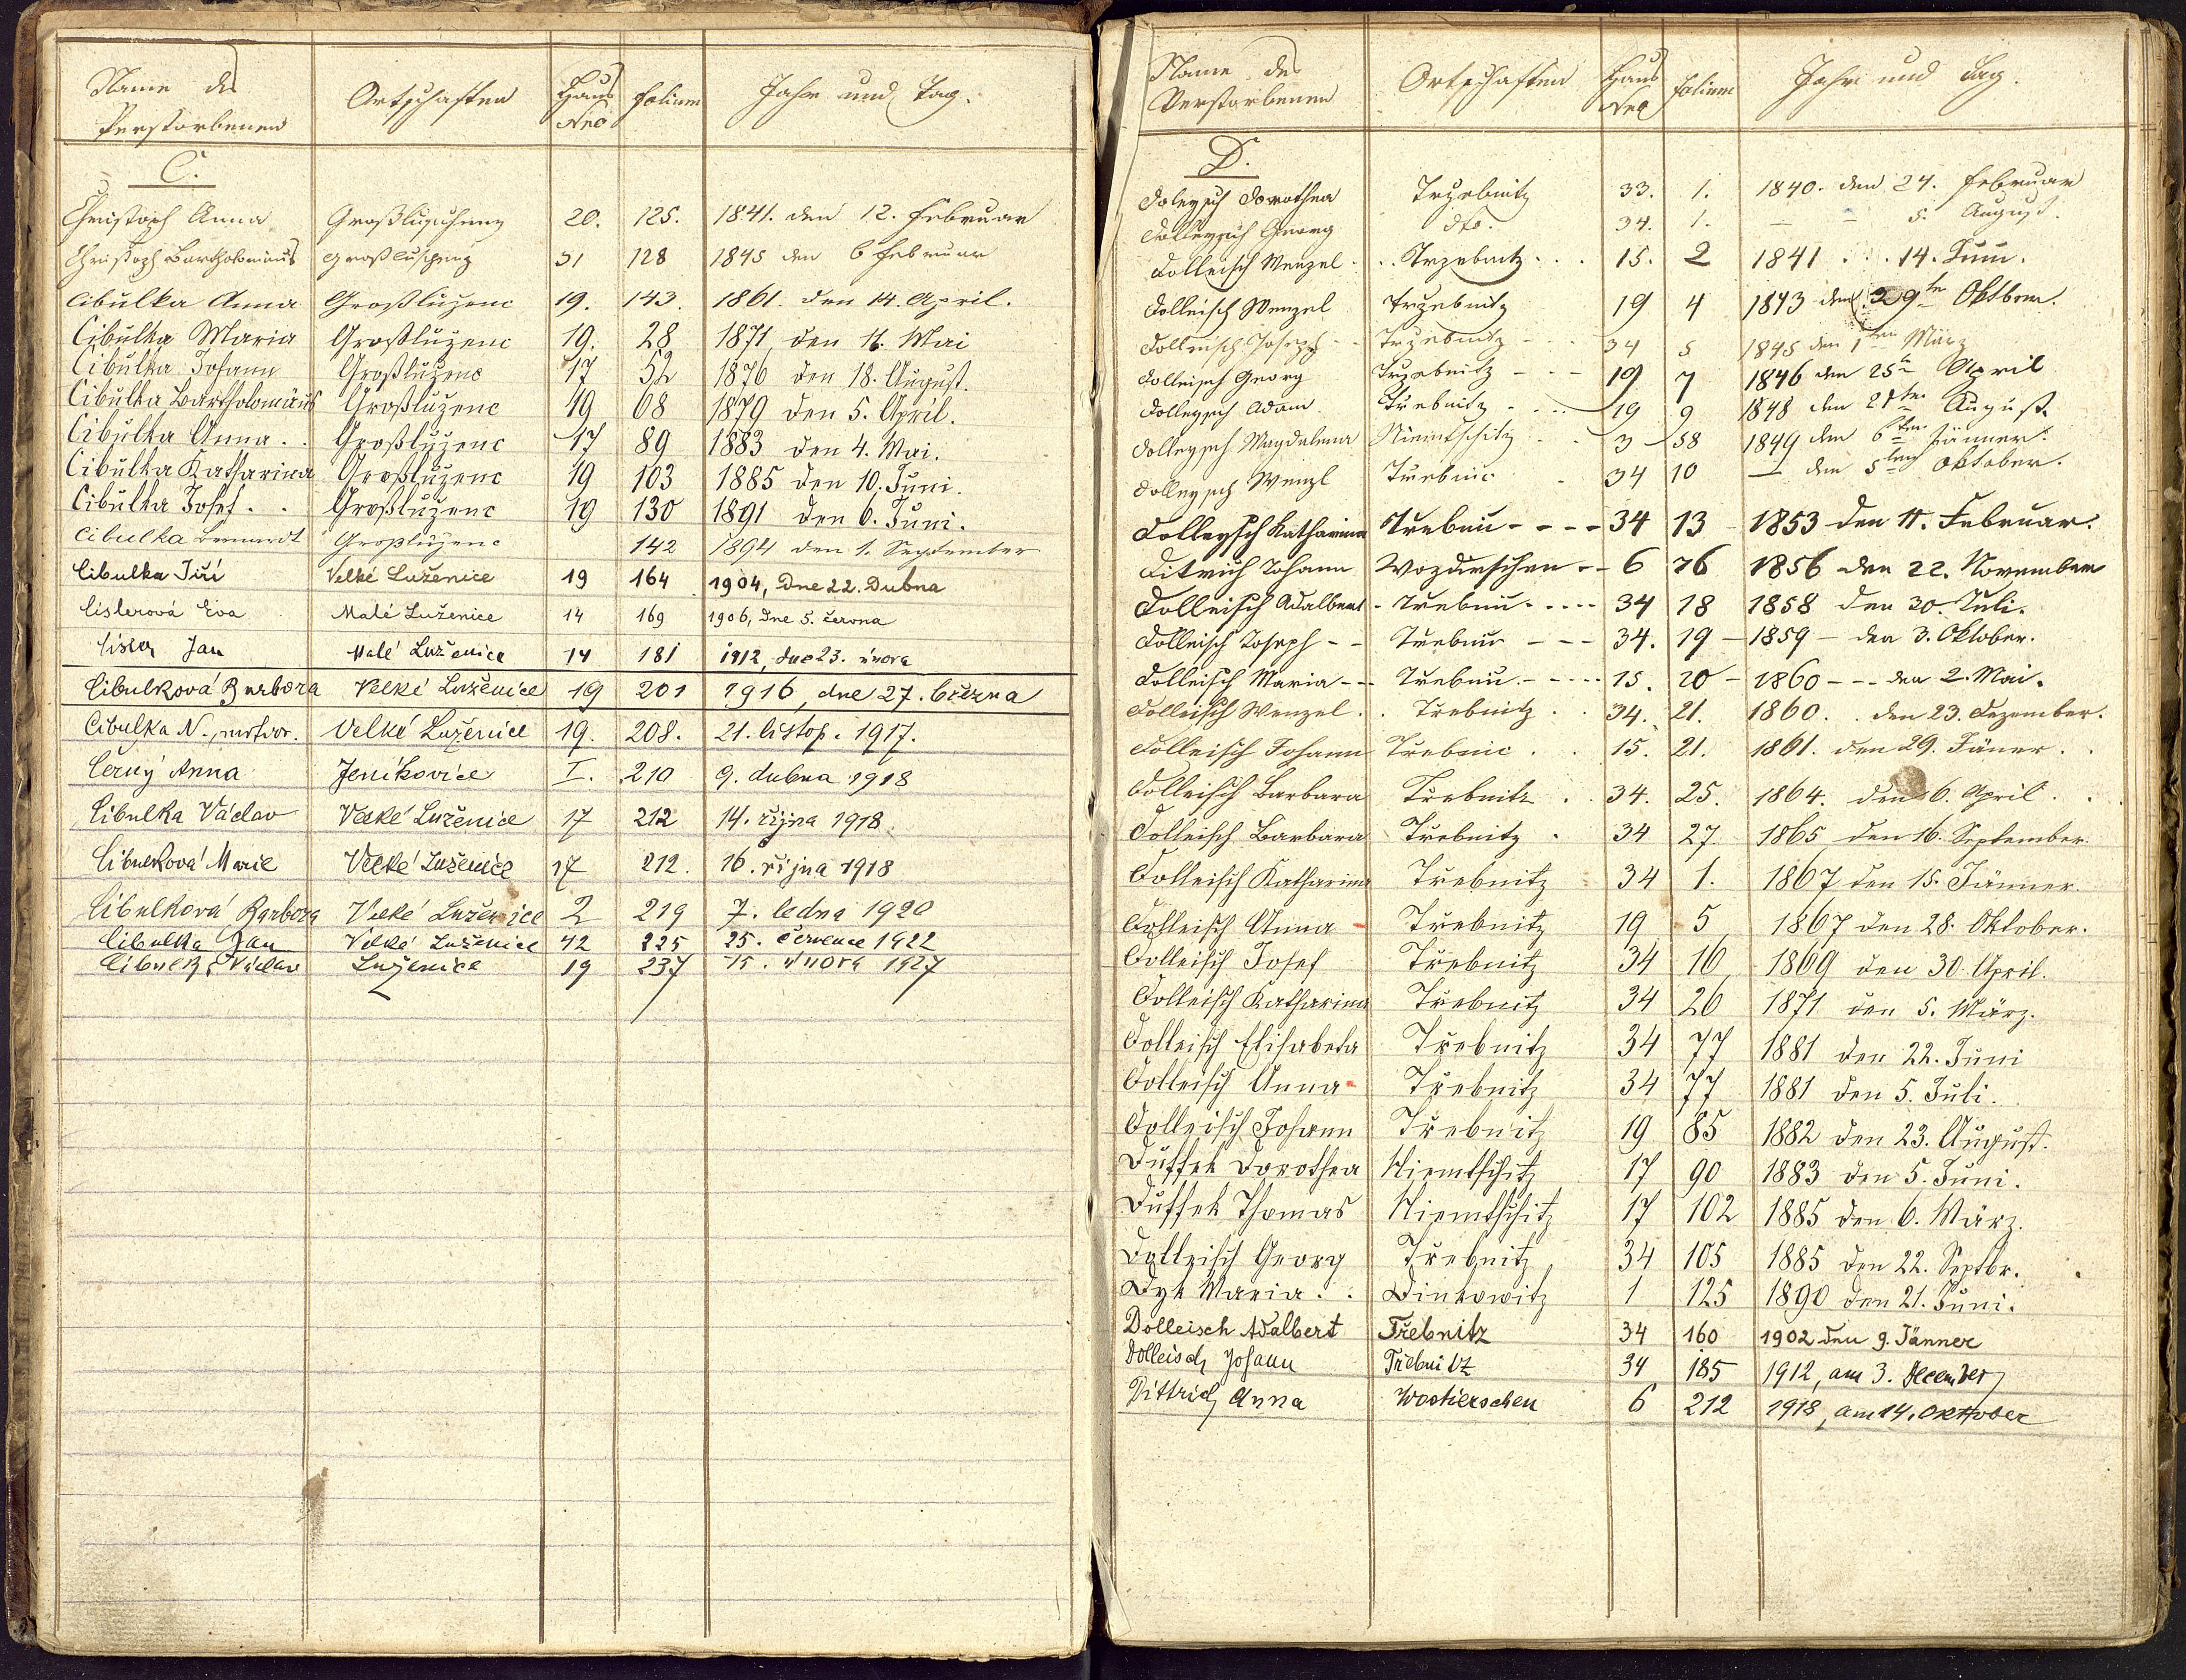 Name des Verstorbenen | Ortschaften | Haus Nro | Folium | Jahr und Tag.
C.
Christoph Anna | Großluzuhenz | 20. | 125. | 1841. den 12. Februar
Christoph Bartholomäus | Großluschenz | 31 | 128 | 1845 den 6 Februar
Cibulka Anna | Großluženc | 19. | 143. | 1861. den 14. April.
Cibulka Maria | Großluženc | 19. | 28 | 1871, den 11. Mai
Cibulka Johann | Großluženc | 17 | 52 | 1876 den 18. August.
Cibulka Bartholomäus | Großluženc | 19 | 68 | 1879 den 5. April.
Cibulka Anna . . | Großluženc | 17 | 89 | 1883 den 4. Mai.
Cibulka Katharina | Großluženc | 19 | 103 | 1885 den 10. Juni.
Cibulka Josef . . | Großluženc | 19 | 130 | 1891 den 6. Juni.
Cibulka Bernardt | Großluženc | 142 | 1894 den 1. September
Cibulka Jiří | Velké Luženice | 19 | 164 | 1904, dne 22. Dubna
Cislerová Eva | Malé Luženice | 14 | 169 | 1906, dne 5. června
Cisler Jan | Malé Luženice | 14 | 181 | 1912, dne 23. února
Cibulková Barbora | Velké Luženice | 19 | 201 | 1916, dne 27. března
Cibulka N., mrtvor. | Velké Luženice | 19. | 208. | 21. listop. 1917.
Černý Anna | Jeníkovice | I. | 210 | 9. dubna 1918
Cibulka Václav | Velké Luženice | 17 | 212 | 14. října 1918.
Cibulková Marie | Velké Luženice | 17 | 212. | 16. října 1918
Cibulková Barbora | Velké Luženice | 2 | 219 | 7. ledna 1920
Cibulka Jan | Velké Luženice | 42 | 225 | 25. července 1922
Cibulka Václav | Luženice | 19 | 237 | 15. února 1927
Name des Verstorbenen | Ortschaften | Haus Nro | Folium | Jahr und Tag.
D.
Doleysch Dorothea | Trzebnitz | 33. | 1. | 1840. den 24. Februar
Dolleysch Georg | dto. | 34. | 1. | — – 5. August.
Dolleisch Wenzel | Trzebnitz | 15. | 2 | 1841 . . 14. Juni.
Dolleisch Wenzel | Trzebnitz | 19 | 4 | 1843 den 29ten Oktober.
Dolleisch Joseph | Trzebnitz | 34 | 5 | 1845 den 1ten März
Dolleisch Georg | Trzebnitz | 19 | 7 | 1846 den 25ten April
Dolleysch Adam | Trebnitz | 19 | 9 | 1848 den 21ten August
Dolleysch Magdalena | Niemtschitz | 3 | 58 | 1849 den 6ten Jänner.
Dolleysch Wenzl | Trebnic | 34 | 10 | — den 5ten Oktober.
Dolleysch Katharina | Trebnic | 34 | 13 | 1853 den 11. Februar.
Ditrich Johann | Wozdierschen | 6 | 76 | 1856 den 22. November
Dolleisch Adalbert | Trebnic | 34 | 18 | 1858 den 30. Juli.
Dolleisch Joseph | Trebnic | 34. | 19 | 1859 – den 3. Oktober.
Dolleisch Maria | Trebnic | 15. | 20 | 1860 – – – den 2. Mai.
Dolleisch Wenzel | Trebnitz | 34. | 21. | 1860. . den 23. Dezember.
Dolleisch Johann | Trebnic | 15. | 21. | 1861. den 29. Jäner.
Dolleisch Barbara | Trebnitz | 34. | 25. | 1864. den 6. April.
Dolleisch Barbara | Trebnitz | 34 | 27. | 1865 den 16. September.
Dolleisch Katharina | Trebnitz | 34 | 1. | 1867 den 15. Jänner.
Dolleisch Anna | Trebnitz | 19 | 5 | 1867 den 28. Oktober.
Dolleisch Josef | Třebnitz | 34 | 16 | 1869 den 30. April.
Dolleisch Katharina | Třebnitz | 34 | 26 | 1871 den 5. März.
Dolleisch Elisabeta | Třebnitz | 34 | 77 | 1881 den 22. Juni
Dolleisch Anna | Třebnitz | 34 | 77 | 1881 den 5. Juli.
Dolleisch Johann | Třebnitz | 19 | 85 | 1882 den 23. August.
Duffek Dorothea | Niemtschitz | 17 | 90 | 1883 den 5. Juni.
Duffek Thomas | Niemtschitz | 17 | 102 | 1885 den 6. März.
Dolleisch Georg | Třebnitz | 34 | 105 | 1885 den 22. Septbr.
Dyk Maria . . | Dinkowitz | 1 | 125 | 1890 den 21. Juni.
Dolleisch Adalbert | Třebnitz | 34 | 160 | 1902 den 9. Jänner
Dolleisch Johann | Třebnitz | 34 | 185 | 1912, am 3. December
Dittrich Anna | Wostierschen | 6 | 212 | 1918, am 14. Oktober